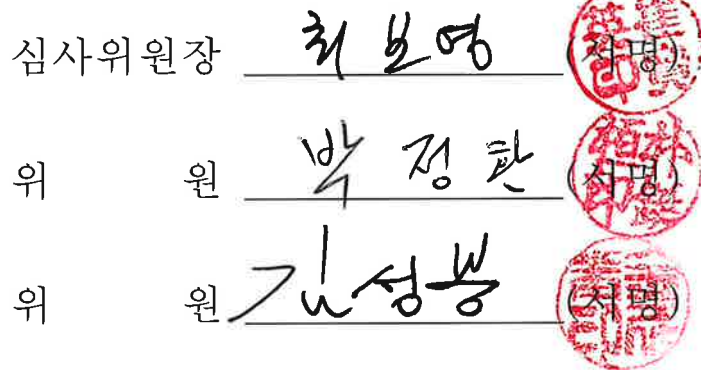 심사위원장 최보영 (서명)
위 원 박정판 (서명)
위 원 김성봉 (서명)